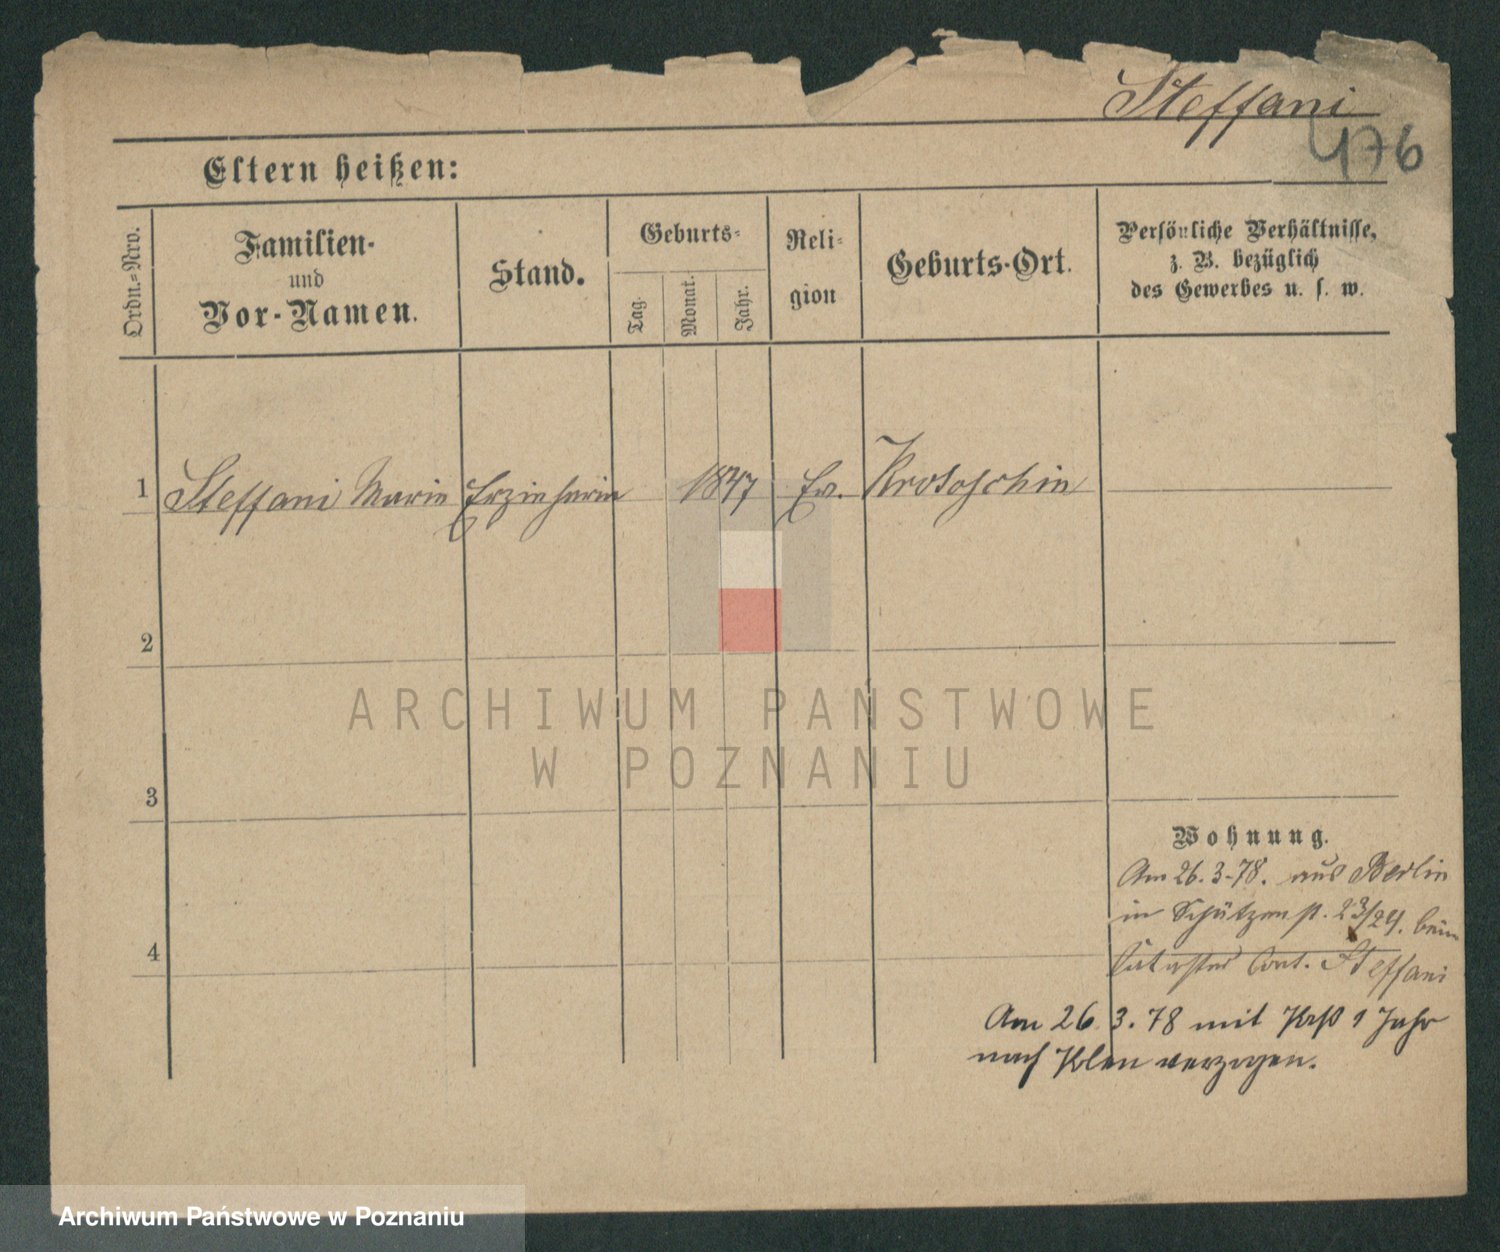 Steffani
476
Eltern heißen:
Ordn.=Nro.
Familien-
und
Vor-Namen.
Stand.
Geburts-
Tag.
Monat.
Jahr.
Reli-
gion
Geburts-Ort.
Persönliche Verhältnisse,
z. B. bezüglich
des Gewerbes u. s. w.
1
Steffani Marie
Erzieherin
1847
Ev.
Krotoschin
2
3
4
Wohnung.
Am 26. 3. 78. aus Berlin
in Schützenst. 23/24. beim
Kataster Cont. Steffani
Am 26. 3. 78 mit 1 Jahr
nach verzogen.
ARCHIWUM PAŃSTWOWE
W POZNANIU
Archiwum Państwowe w Poznaniu